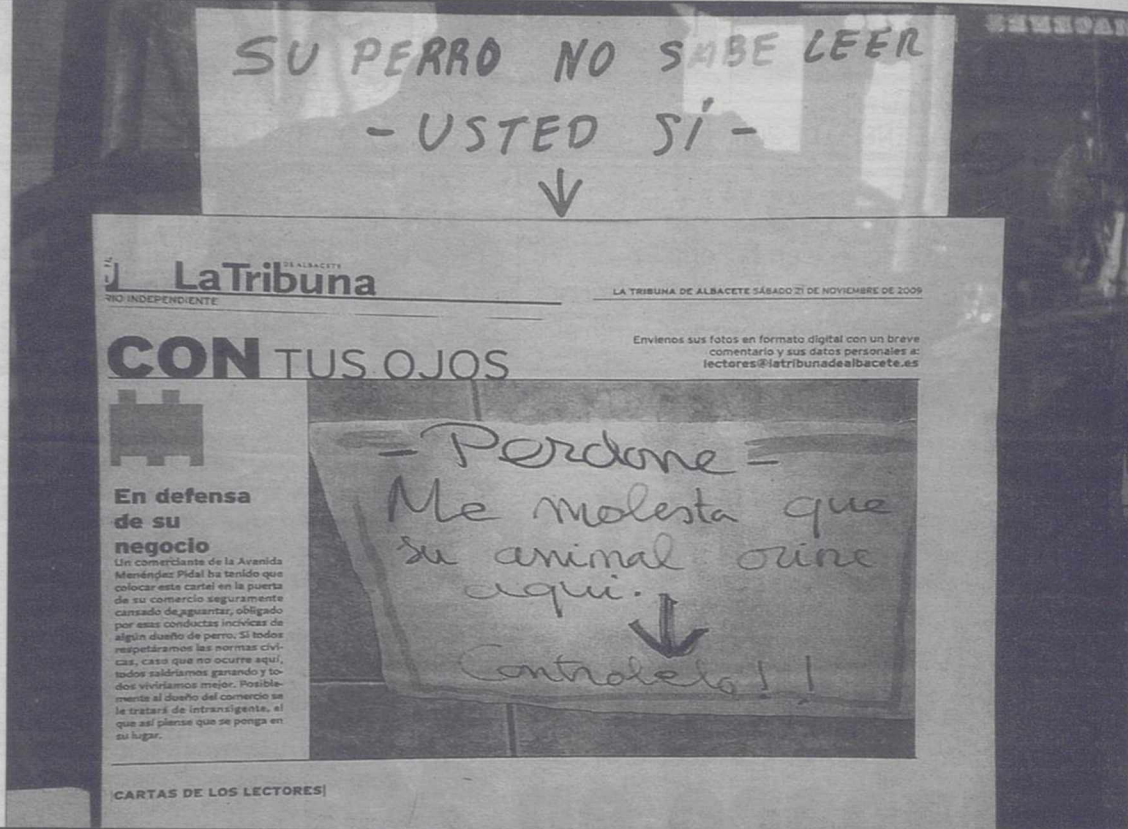 SU PERRO NO SABE LEER
- USTED SÍ -
DE ALBACETE
La Tribuna
RIO INDEPENDIENTE
LA TRIBUNA DE ALBACETE SÁBADO 21 DE NOVIEMBRE DE 2009
CON TUS OJOS
Envíenos sus fotos en formato digital con un breve
comentario y sus datos personales a:
lectores@latribunadealbacete.es
En defensa
de su
negocio
Un comerciante de la Avenida
Menéndez Pidal ha tenido que
colocar este cartel en la puerta
de su comercio seguramente
cansado de aguantar, obligado
por esas conductas incívicas de
algún dueño de perro. Si todos
respetáramos las normas cívi-
cas, caso que no ocurre aquí,
todos saldríamos ganando y to-
dos viviríamos mejor. Posible-
mente al dueño del comercio se
le tratará de intransigente, el
que así piense que se ponga en
su lugar.
- Perdone -
Me molesta que
su animal orine
aqui.
Controlelo!!
CARTAS DE LOS LECTORES